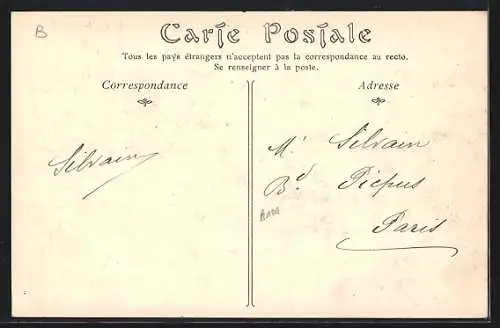 B
Carte Postale
Tous les pays étrangers n'acceptent pas la correspondance au recto.
Se renseigner à la poste.
Correspondance
Silvain
Adresse
Mr Silvain
Bd. Picpus
Paris